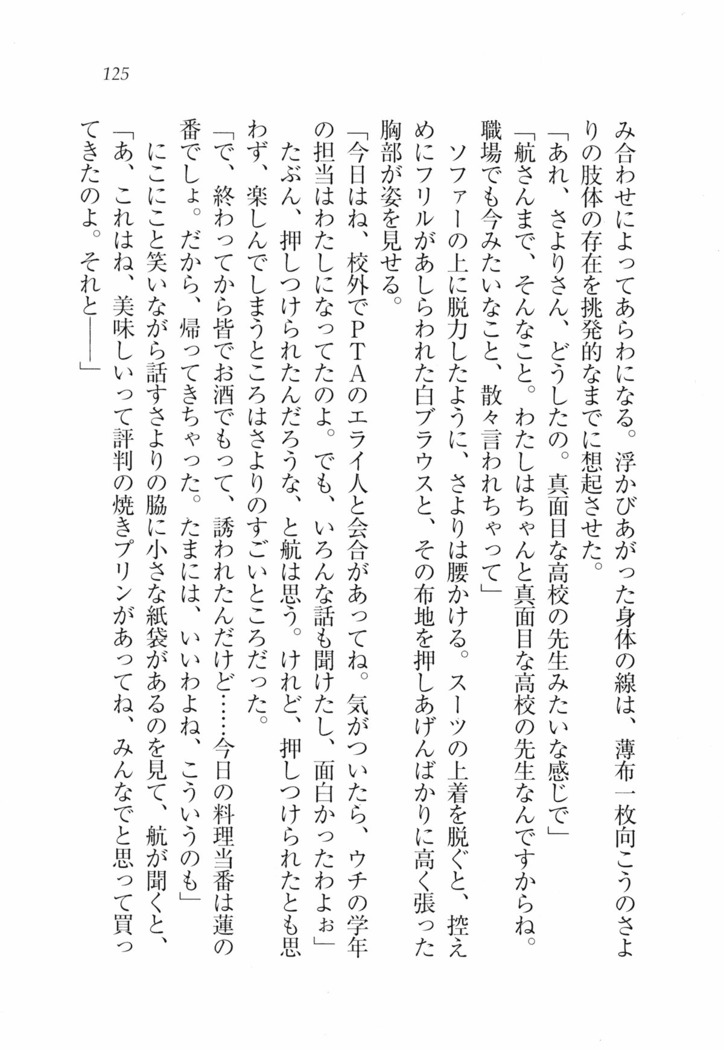 125
み合わせによってあらわになる。浮かびあがった身体の線は、薄布一枚向こうのさよ
りの肢体の存在を挑発的なまでに想起させた。
「あれ、さよりさん、どうしたの。真面目な高校の先生みたいな感じで」
「航さんまで、そんなこと。わたしはちゃんと真面目な高校の先生なんですからね。
職場でも今みたいなこと、散々言われちゃって」
　ソファーの上に脱力したように、さよりは腰かける。スーツの上着を脱ぐと、控え
めにフリルがあしらわれた白ブラウスと、その布地を押しあげんばかりに高く張った
胸部が姿を見せる。
「今日はね、校外でＰＴＡのエライ人と会合があってね。気がついたら、ウチの学年
の担当はわたしになってたのよ。でも、いろんな話も聞けたし、面白かったわよぉ」
　たぶん、押しつけられたんだろうな、と航は思う。けれど、押しつけられたとも思
わず、楽しんでしまうところはさよりのすごいところだった。
「で、終わってから皆でお酒でもって、誘われたんだけど……今日の料理当番は蓮の
番でしょ。だから、帰ってきちゃった。たまには、いいわよね、こういうのも」
　にこにこと笑いながら話すさよりの脇に小さな紙袋があるのを見て、航が聞くと、
「あ、これはね、美味しいって評判の焼きプリンがあってね、みんなでと思って買っ
てきたのよ。それと――」